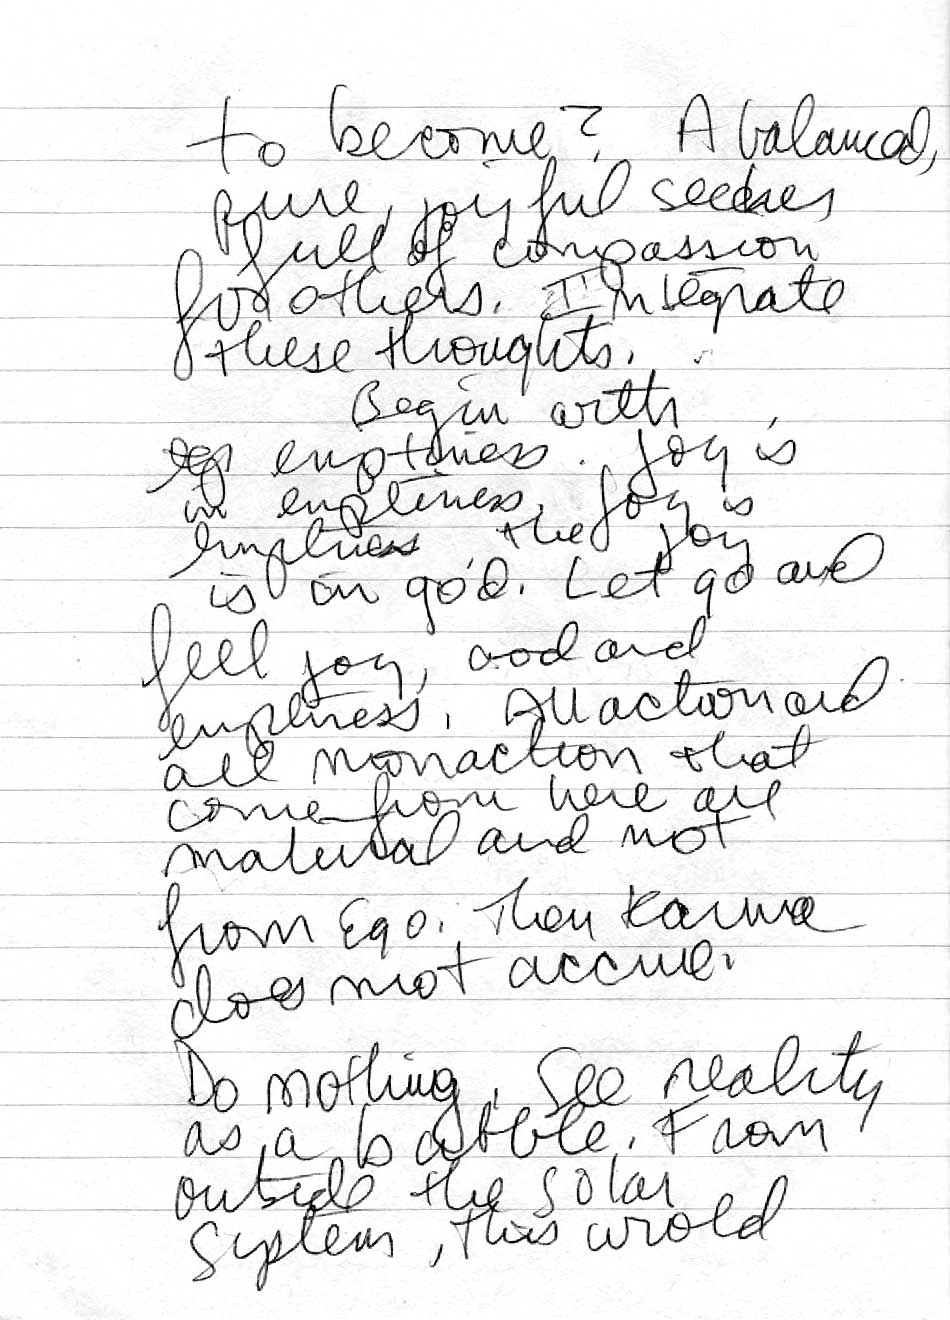 to become? A balanced,
pure, joyful seeker
full of compassion
for others. Integrate
these thoughts.
Begin with
emptiness. Joy is
in emptiness. Joy is
emptiness the joy
is in god. Let go and
feel joy, and
emptiness. All action and
all nonaction that
come from here are
material and not
from Ego. Then Karma
does not accrue.
Do nothing. See reality
as a bubble. From
outside the solar
system, this wrold